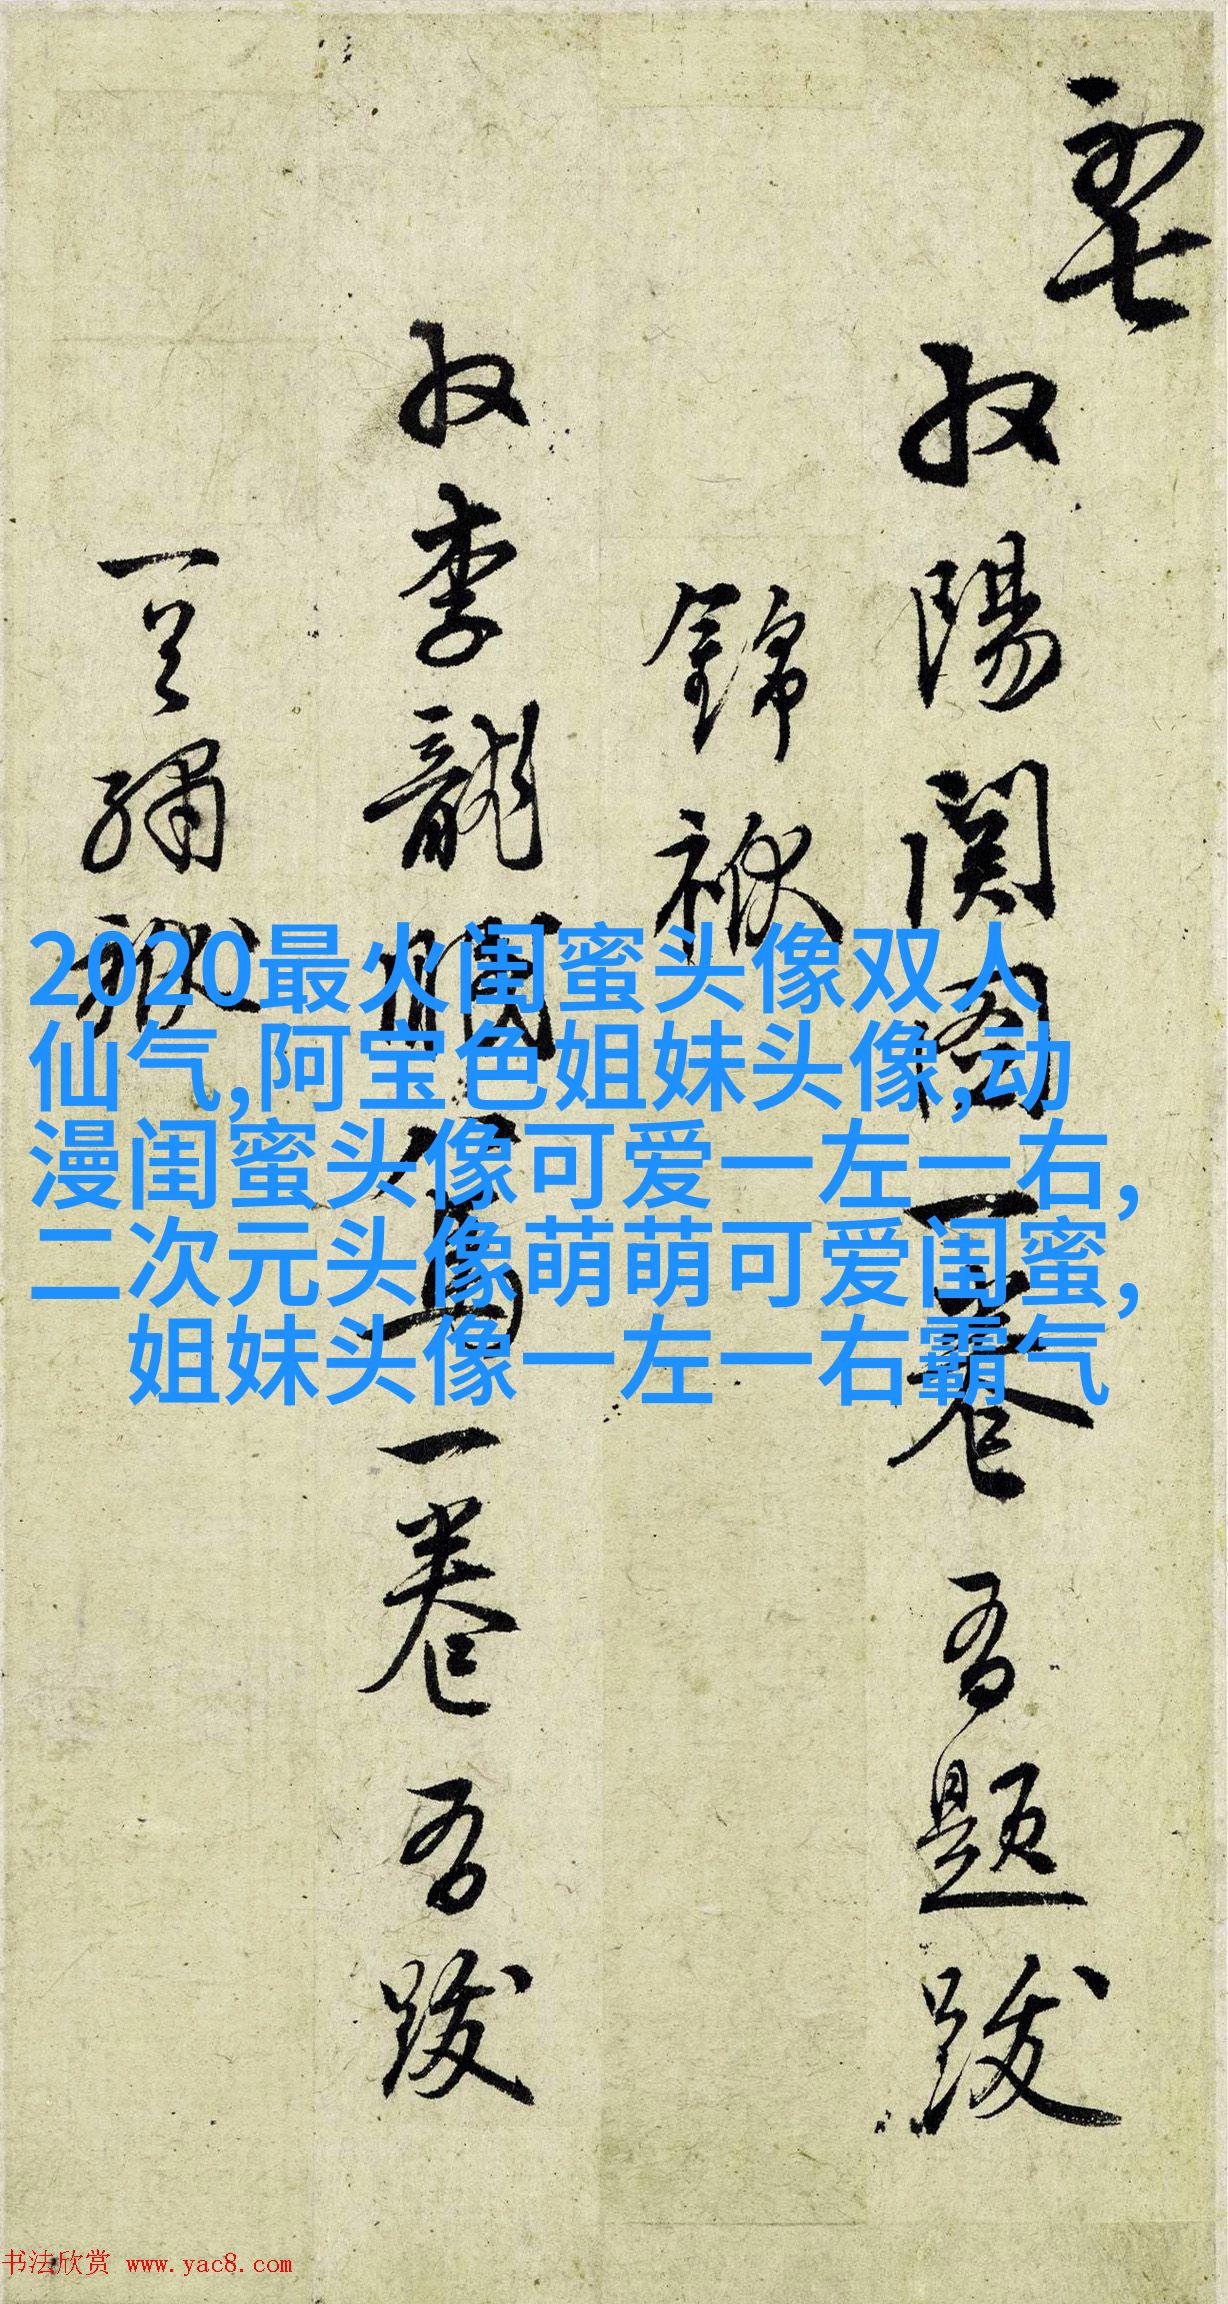 収陽関圖一卷吾題跋
錦袱
収李龍眠
一卷吾跋
2020最火闺蜜头像双人
仙气,阿宝色姐妹头像,动
漫闺蜜头像可爱一左一右,
二次元头像萌萌可爱闺蜜,
姐妹头像一左一右霸气
书法欣赏 www.yac8.com